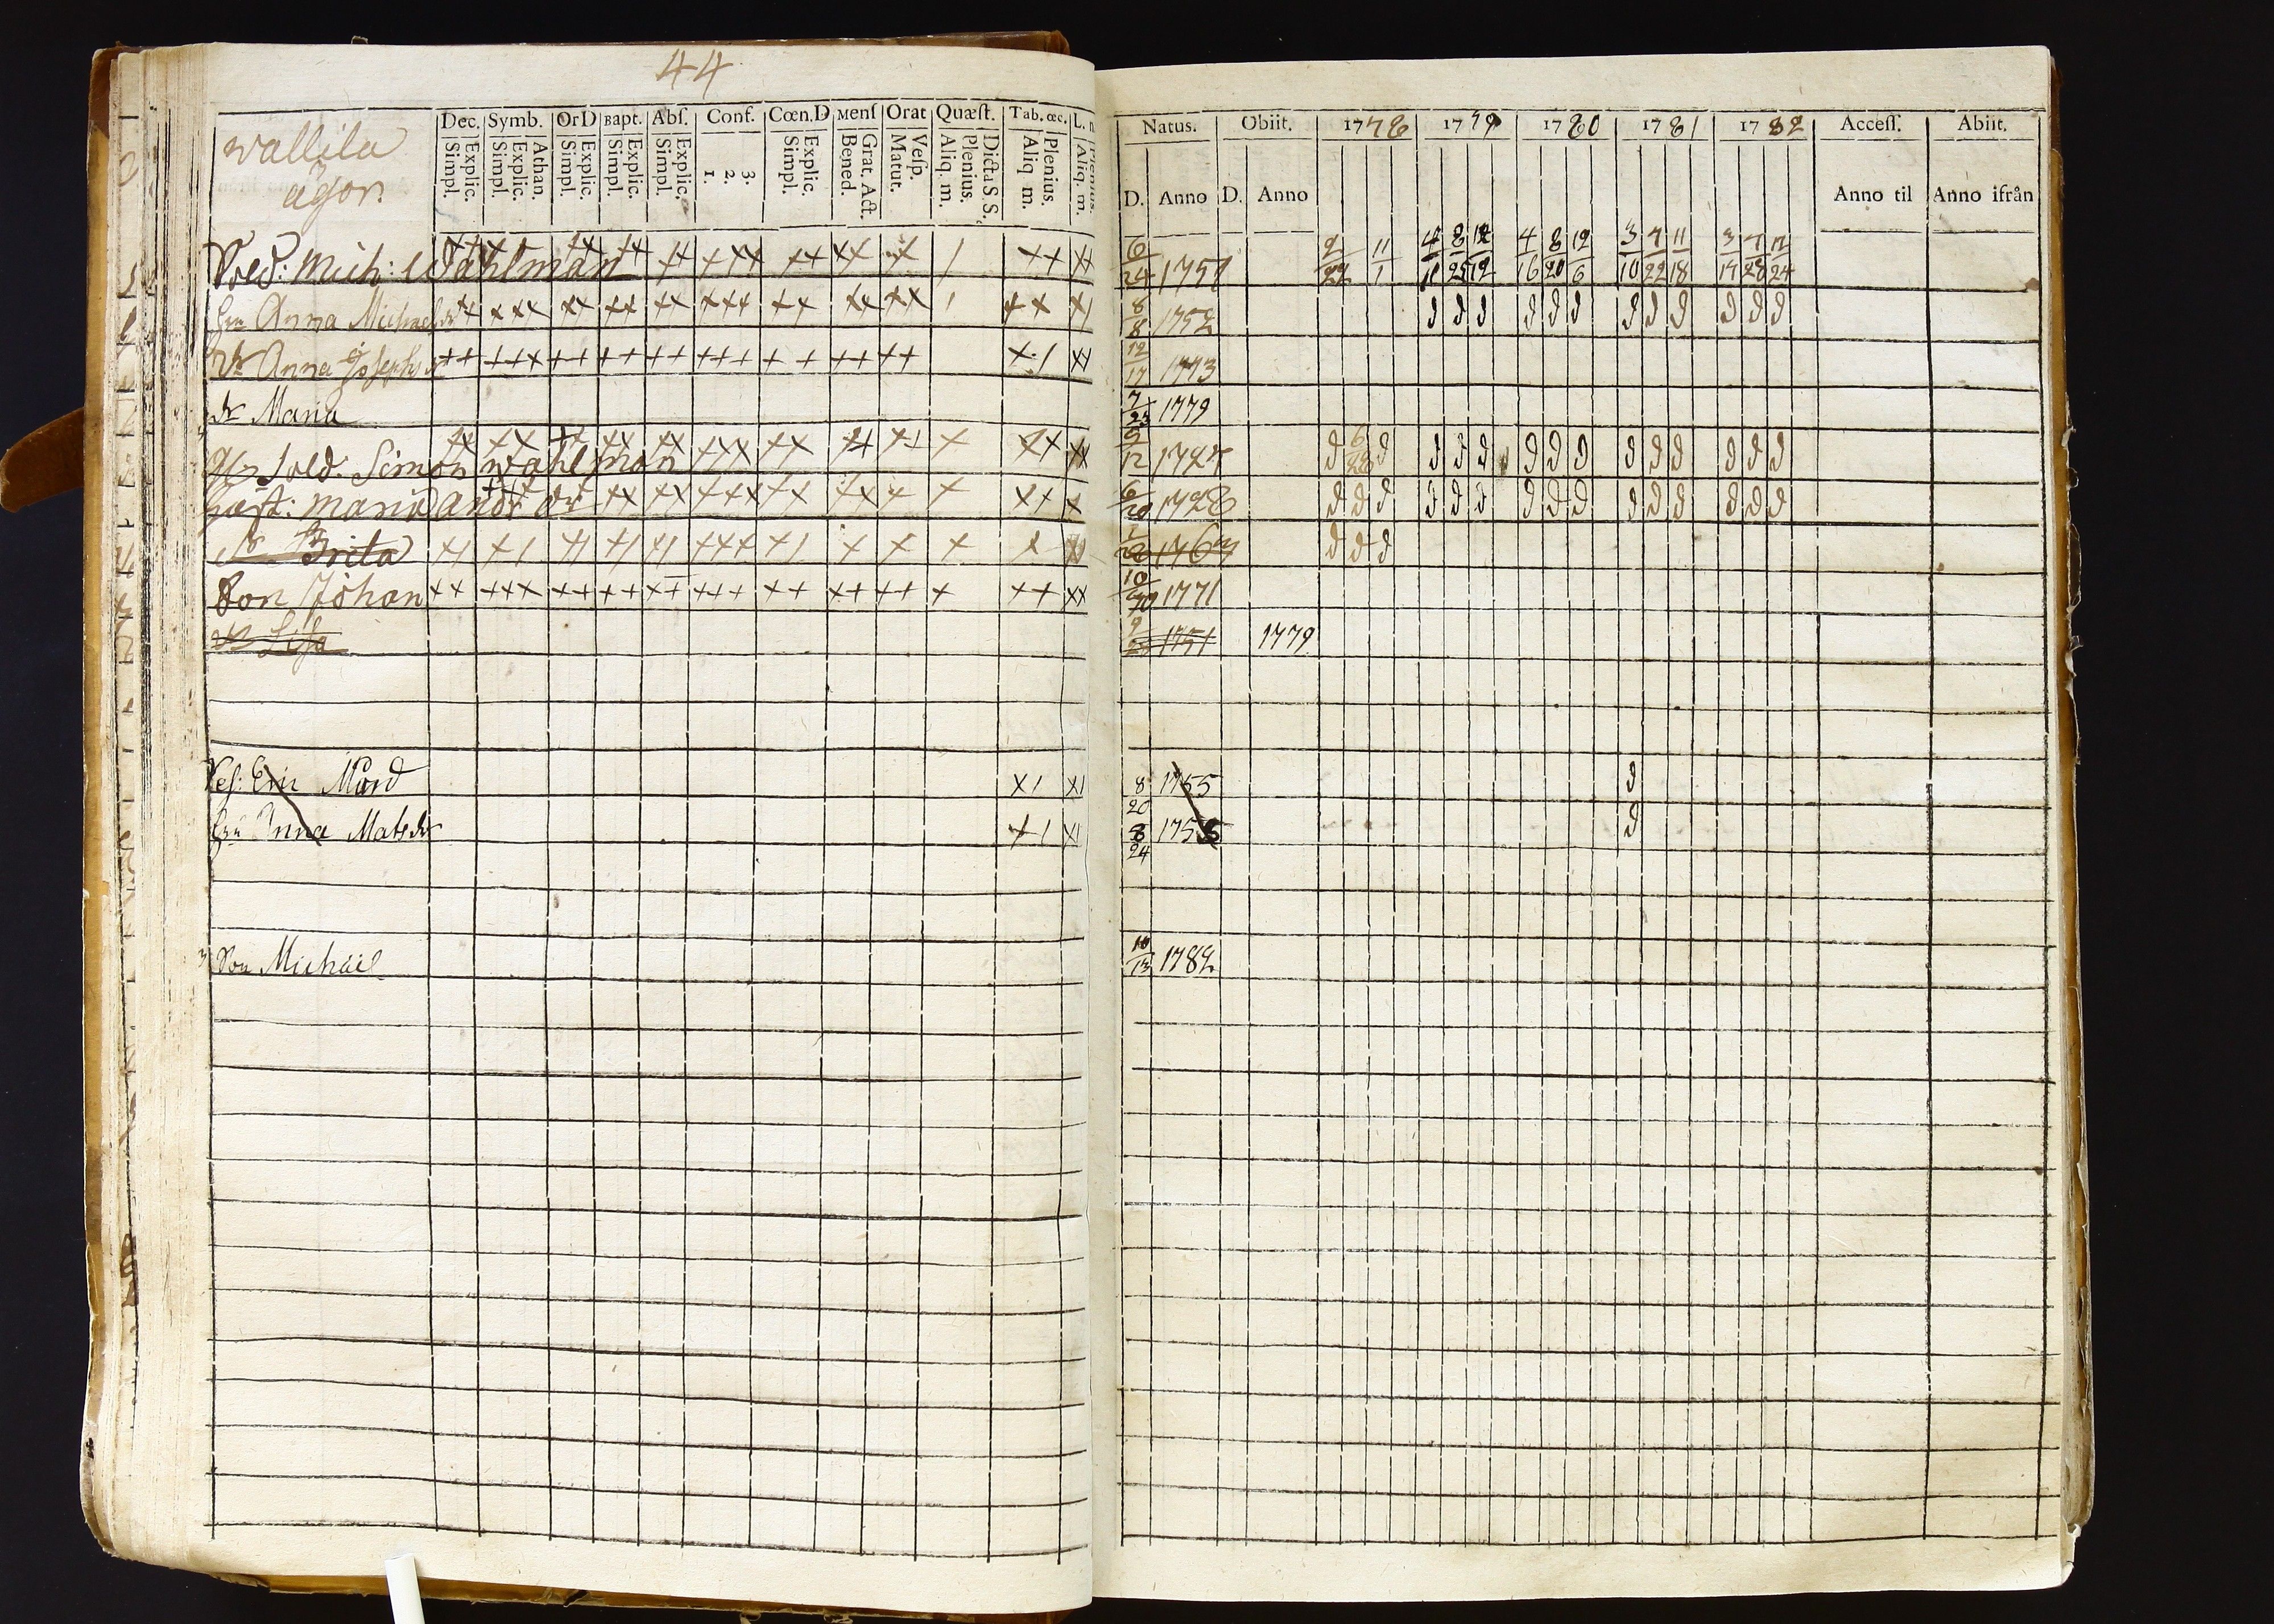 44
wallila
ägor.
Dec. Symb. Or D Bapt. Abſ. Conf. Cœn. D Menſ Orat Quæſt. Tab. œc. L. n
Explic. Simpl. Athan. Explic. Simpl. Explic. Simpl. Explic. Simpl. Explic. Simpl. 3. 2. 1. Explic. Simpl. Grat. Act. Bened. Veſp. Matut. Dicta S. S. Plenius. Aliq. m. Plenius. Aliq m. Plenius. Aliq. m.
Natus. Obiit. 1778 1779 1780 1781 1782 Acceſſ. Abiit.
D. Anno D. Anno Anno til Anno ifrån
Sold: Mich: Wahlman 6/24 1751 11/1 4/11 8/25 12/12 4/16 8/20 12/6 3/10 7/22 11/18 3/17 7/28 11/24
Hru Anna Michaelsdr 8/8 1752
dr Anna Josephsdr 12/17 1773
dr Maria 7/25 1779
Sold. Simon wahlman 9/12
Hust: Maria Andr dr 6/20 1728
dr Brita
Son Johan 10/20 1771
dr Lisa 1751 1779
Res: Eric Mård 8/20 1755
Hru Anna Matsdr 8/24 1755
Son Michäel 10/13 1782